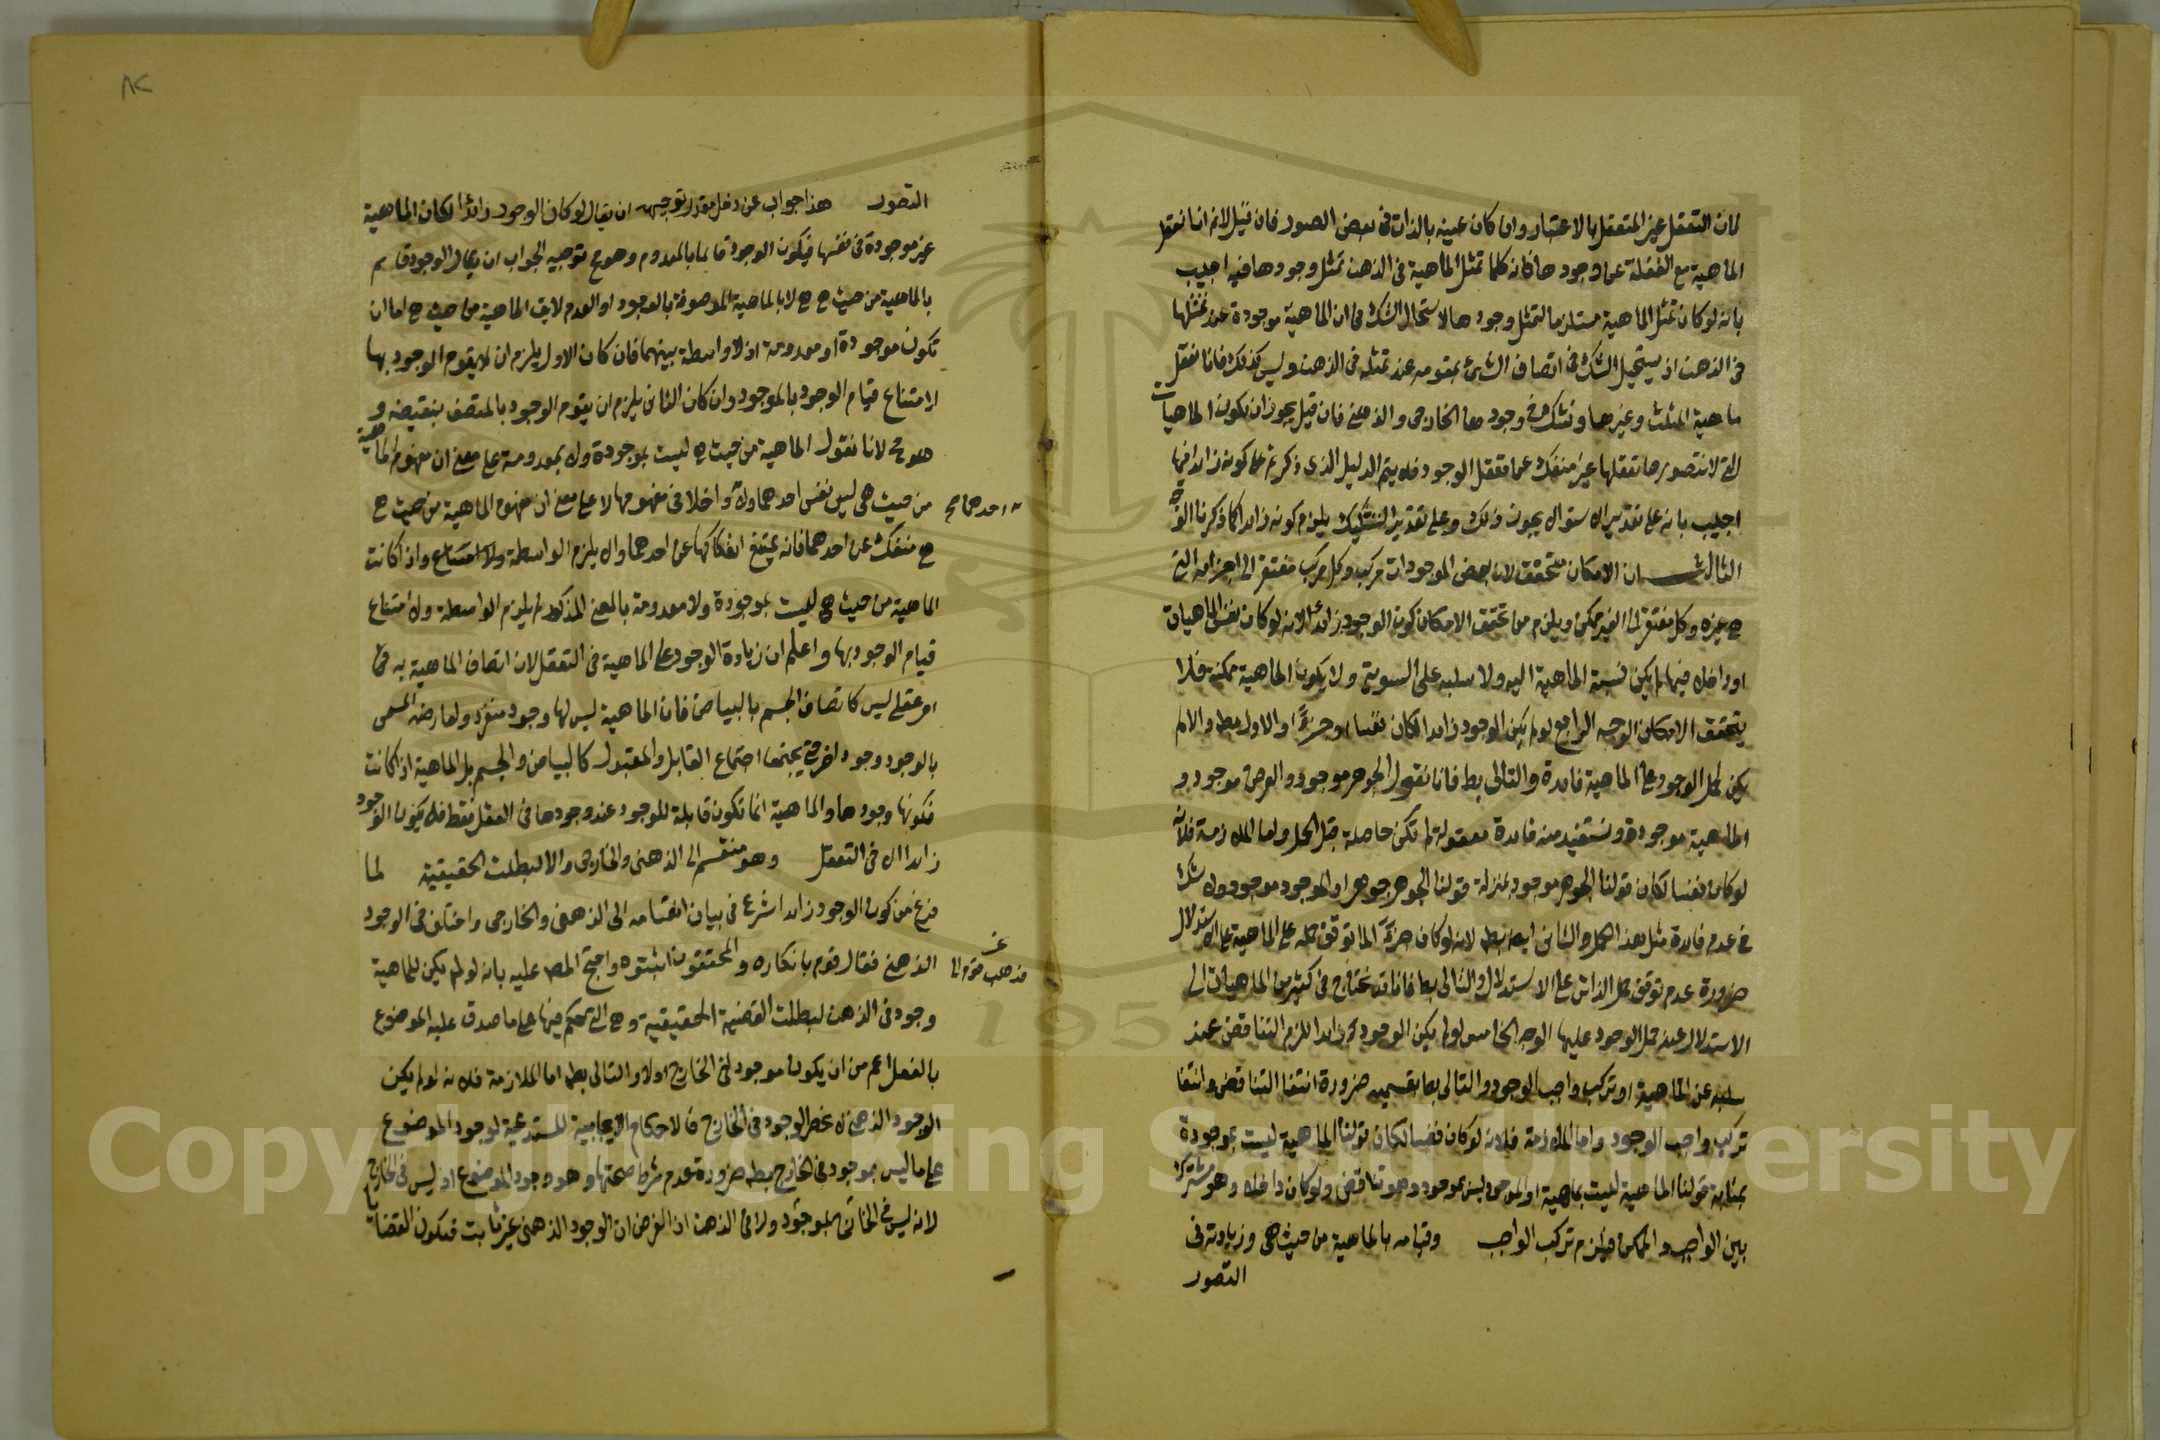 لان التعقل غير المتعقل بالاعتبار وان كان عينه بالذات فى بعض الصور فان قيل لانم انا نعقل
الماهية مع الغفلة عن وجودها فانه كلما تمثل الماهية فى الذهن تمثل وجودها فيه اجيب
بانه لو كان تمثل الماهية مستلزما لتمثل وجودها لاستحال الشك فى ان الماهية موجودة عند تمثلها
فى الذهن اذ يستحيل الشك فى اتصاف الشئ بمقومه عند تمثله فى الذهن وليس كذلك فانا نعقل
ماهية المثلث وغيرها ونشك فى وجودها الخارجى والذهنى فان قيل يجوز ان تكون الماهيات
التى لا نتصورها تعقلها غير منفك عما تعقل الوجود فلا يتم الدليل الذى ذكرتم على كونه زائدا فيها
اجيب بانه على تقدير السؤال يجوز ذلك وعلى تقدير التشكيك يلزم كونه زائدا كما ذكرنا الوجه
الثالث ان الامكان متحقق لان بعض الموجودات مركب وكل مركب مفتقر الى اجزائه التى
هى غيره وكل مفتقر الى الغير ممكن ويلزم من تحقق الامكان كون الوجود زائدا لانه لو كان نفس الماهيات
او داخلا فيها لم يكن نسبة الماهية اليه ولا سلبه على السوية ولا يكون الماهية ممكنة فلا
يتحقق الامكان الوجه الرابع لو لم يكن الوجود زائدا لكان نفسا او جزءا والاول بط والا لم
يكن لحمل الوجود على الماهية فائدة والتالى بط فانا نقول الجوهر موجود والعرض موجود و
الماهية موجودة ونستفيد منه فائدة معقولة لم تكن حاصلة قبل الحمل واما الملازمة فلانه
لو كان نفسا لكان قولنا الجوهر موجود بمنزلة قولنا الجوهر جوهر او الموجود موجود ولا شك
فى عدم فائدة مثل هذا الحمل والثانى ايضا بط لانه لو كان جزءا لما توقف حمله على الماهية على الاستدلال
ضرورة عدم توقف حمل الذاتى على الاستدلال والتالى بط فانا قد نحتاج فى كثير من الماهيات الى
الاستدلال عند حمل الوجود عليها الوجه الخامس لو لم يكن الوجود زائدا للزم التناقض عند
سلبه عن الماهية او تركب واجب الوجود والتالى بط بقسميه ضرورة انتفا التناقض وانتفا
تركب واجب الوجود واما الملازمة فلانه لو كان نفسا لكان قولنا الماهية ليست بموجودة
بمثابة قولنا الماهية ليست بماهية او الموجود ليس بموجود وهو تناقض ولو كان داخلا وهو مشترك
بين الواجب والممكن فيلزم تركب الواجب وقيامه بالماهية من حيث هى وزيادته فى
التصور
٨٢
التصور هذا جواب عن دخل مقدر توجيهه ان يقال لو كان الوجود زائدا لكان الماهية
غير موجودة فى نفسها فيكون الوجود قائما بالمعدوم وهو مح توجيه الجواب ان يقال الوجود قائم
بالماهية من حيث هى هى لا بالماهية الموصوفة بالوجود او العدم لايق الماهية من حيث هى اما ان
تكون موجودة او معدومة اذ لا واسطة بينهما فان كان الاول يلزم ان لا يقوم الوجود بها
لامتناع قيام الوجود بالموجود وان كان الثانى يلزم ان يقوم الوجود بالمتصف بنقيضه و
هو مح لانا نقول الماهية من حيث هى ليست بموجودة ولا بمعدومة على معنى ان مفهوم الماهية
من حيث هى ليس نفس احدهما ولا داخلا فى مفهومها لا على معنى ان مفهوم الماهية من حيث هى
هى منفك عن احدهما فانه يمتنع انفكاكها عن احدهما والا يلزم الواسطة ولا امتناع واذا كانت
الماهية من حيث هى ليست بموجودة ولا معدومة بالمعنى المذكور لم يلزم الواسطة ولا امتناع
قيام الوجود بها واعلم ان زيادة الوجود على الماهية فى التعقل لان اتصاف الماهية به
امر عقلى ليس كاتصاف الجسم بالبياض فان الماهية ليس لها وجود منفرد ولعارضه المسمى
بالوجود وجود اخر حتى يجتمعا اجتماع القابل والمقبول كالبياض والجسم بل الماهية اذا كانت
فكونها وجودها والماهية انما تكون قابلة للوجود عند وجودها فى العقل فقط فلا يكون الوجود
زائدا الا فى التعقل وهو منقسم الى الذهنى والخارجى والا لبطلت الحقيقية لما
فرغ من كون الوجود زائدا شرع فى بيان انقسامه الى الذهنى والخارجى واختلف فى الوجود
الذهنى فقال قوم بانكاره والمحققون اثبتوه واحتج المص عليه بانه لو لم يكن للماهية
وجود فى الذهن لبطلت القضية الحقيقية وهى التى يحكم فيها على ما صدق عليه الموضوع
بالفعل اعم من ان يكون موجودا فى الخارج او لا والتالى بط اما الملازمة فلانه لو لم يكن
الوجود الذهنى لانحصر الوجود فى الخارج فالاحكام الايجابية المستدعية لوجود الموضوع
على ما ليس بموجود فى الخارج بط ضرورة عدم شرط صحتها وهو وجود الموضوع اذ ليس فى الخارج
لانه ليس فى الخارج بموجود ولا فى الذهن اذ الفرض ان الوجود الذهنى غير ثابت فتكون القضايا
Copyright © King Saud University
195